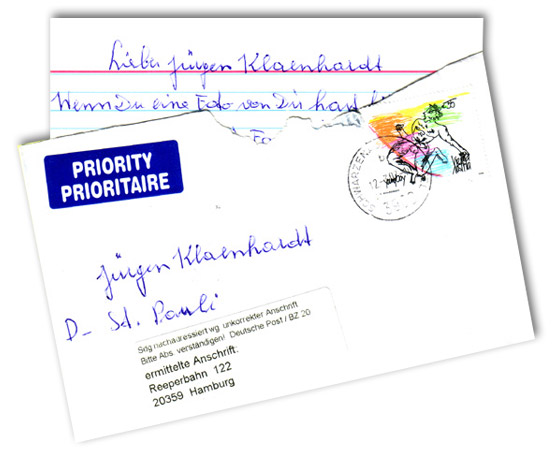 Lieber Jürgen Klaenhardt
Wenn Du eine Foto von Dir hast
PRIORITY
PRIORITAIRE
SCHWARZEN
Jürgen Klaenhardt
D- St. Pauli
Sdg nachadressiert wg. unkorrekter Anschrift
Bitte Abs. verständigen! Deutsche Post / BZ 20
ermittelte Anschrift:
Reeperbahn 122
20359 Hamburg